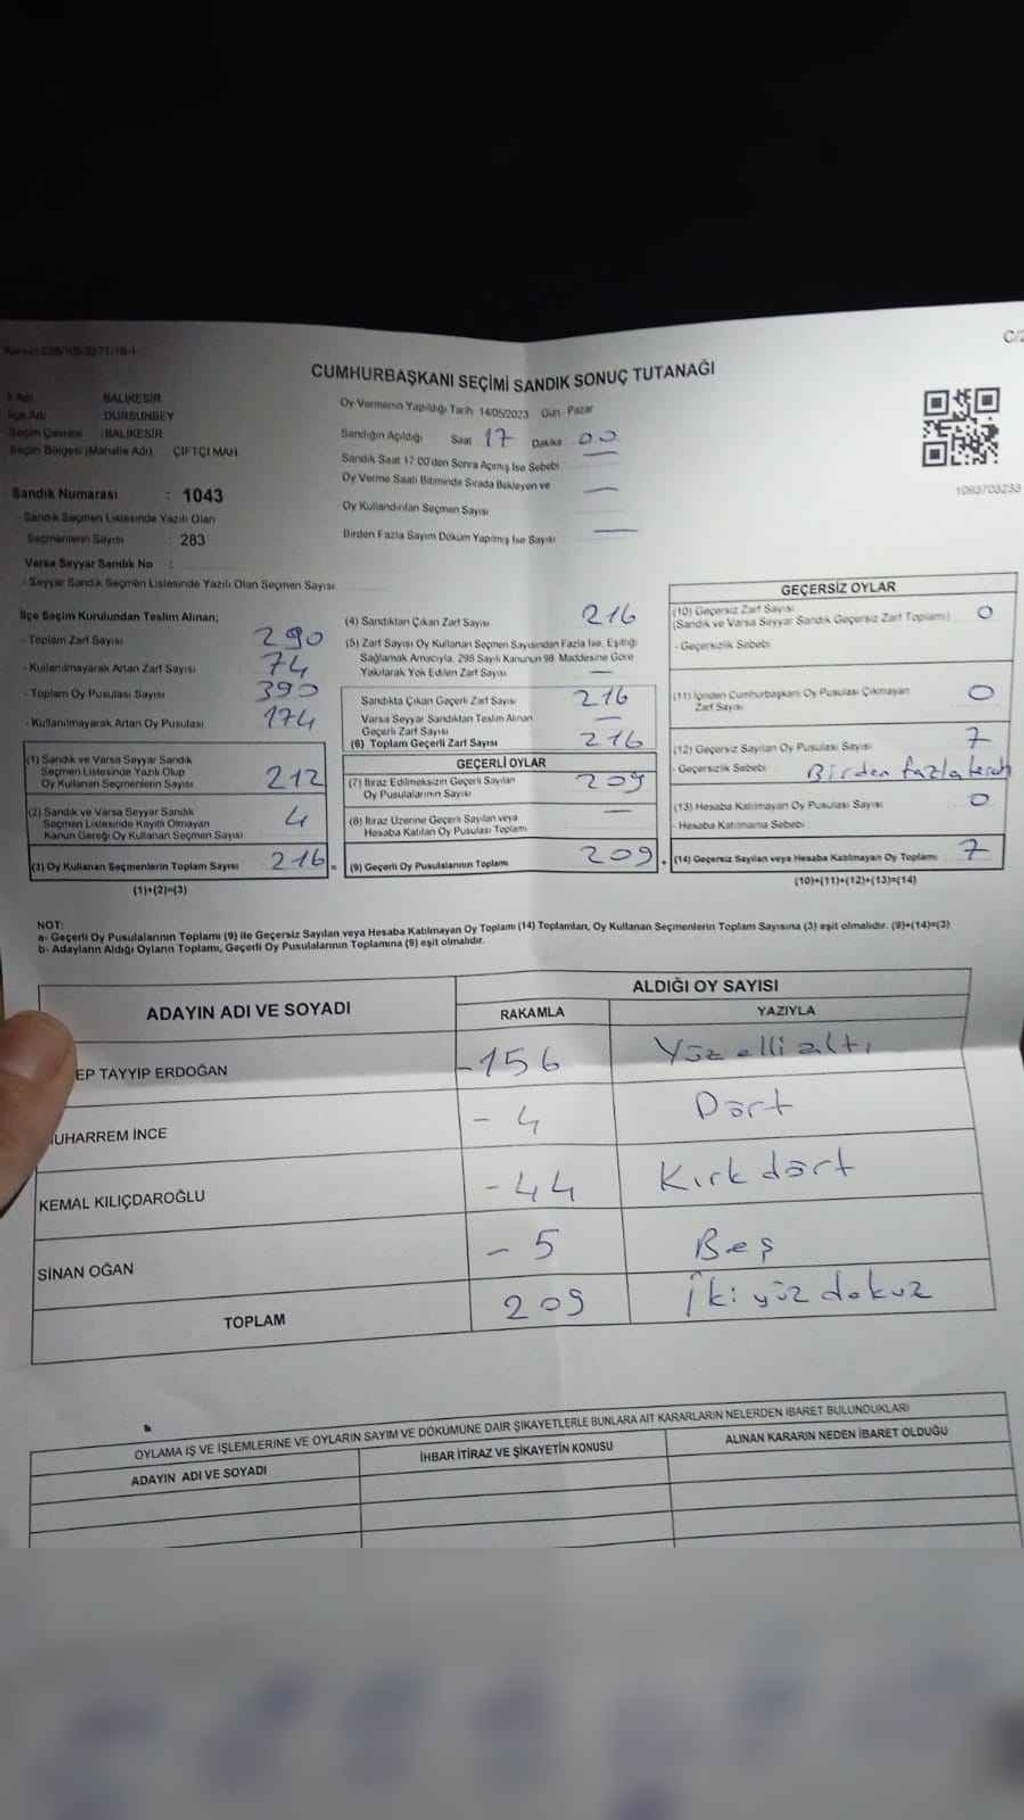 C/2
CUMHURBAŞKANI SEÇİMİ SANDIK SONUÇ TUTANAĞI
İl Adı : BALIKESİR
İlçe Adı : DURSUNBEY
Seçim Çevresi : BALIKESİR
Seçim Bölgesi (Mahalle Adı) ÇİFTÇİ MAH
Sandık Numarası : 1043
Sandık Seçmen Listesinde Yazılı Olan
Seçmenlerin Sayısı : 283
Varsa Seyyar Sandık No :
- Seyyar Sandık Seçmen Listesinde Yazılı Olan Seçmen Sayısı
Oy Vermenin Yapıldığı Tarih 14/05/2023 Gün : Pazar
Sandığın Açıldığı Saat 17 Dakika 00
Sandık Saat 17:00'den Sonra Açılmış İse Sebebi
Oy Verme Saati Bitiminde Sırada Bekleyen ve
Oy Kullandırılan Seçmen Sayısı
Birden Fazla Sayım Döküm Yapılmış İse Sayısı
1093703233
İlçe Seçim Kurulundan Teslim Alınan;
- Toplam Zarf Sayısı 290
- Kullanılmayarak Artan Zarf Sayısı 74
- Toplam Oy Pusulası Sayısı 390
- Kullanılmayarak Artan Oy Pusulası 174
(1) Sandık ve Varsa Seyyar Sandık
Seçmen Listesinde Yazılı Olup
Oy Kullanan Seçmenlerin Sayısı 212
(2) Sandık ve Varsa Seyyar Sandık
Seçmen Listesinde Kayıtlı Olmayan
Kanun Gereği Oy Kullanan Seçmen Sayısı 4
(3) Oy Kullanan Seçmenlerin Toplam Sayısı 216 =
(1)+(2)=(3)
(4) Sandıktan Çıkan Zarf Sayısı 216
(5) Zarf Sayısı Oy Kullanan Seçmen Sayısından Fazla İse, Eşitliği
Sağlamak Amacıyla, 298 Sayılı Kanunun 98. Maddesine Göre
Yakılarak Yok Edilen Zarf Sayısı —
Sandıkta Çıkan Geçerli Zarf Sayısı 216
Varsa Seyyar Sandıktan Teslim Alınan
Geçerli Zarf Sayısı —
(6) Toplam Geçerli Zarf Sayısı 216
GEÇERLİ OYLAR
(7) İtiraz Edilmeksizin Geçerli Sayılan
Oy Pusulalarının Sayısı 209
(8) İtiraz Üzerine Geçerli Sayılan veya
Hesaba Katılan Oy Pusulası Toplamı —
(9) Geçerli Oy Pusulalarının Toplamı 209 +
GEÇERSİZ OYLAR
(10) Geçersiz Zarf Sayısı 0
(Sandık ve Varsa Seyyar Sandık Geçersiz Zarf Toplamı)
- Geçersizlik Sebebi
(11) İçinden Cumhurbaşkanı Oy Pusulası Çıkmayan
Zarf Sayısı 0
(12) Geçersiz Sayılan Oy Pusulası Sayısı 7
- Geçersizlik Sebebi Birden fazla tercih
(13) Hesaba Katılmayan Oy Pusulası Sayısı 0
- Hesaba Katılmama Sebebi
(14) Geçersiz Sayılan veya Hesaba Katılmayan Oy Toplamı 7
(10)+(11)+(12)+(13)=(14)
NOT:
a- Geçerli Oy Pusulalarının Toplamı (9) ile Geçersiz Sayılan veya Hesaba Katılmayan Oy Toplamı (14) Toplamları, Oy Kullanan Seçmenlerin Toplam Sayısına (3) eşit olmalıdır. (9)+(14)=(3)
b- Adayların Aldığı Oyların Toplamı, Geçerli Oy Pusulalarının Toplamına (9) eşit olmalıdır.
ADAYIN ADI VE SOYADI
ALDIĞI OY SAYISI
RAKAMLA YAZIYLA
EP TAYYIP ERDOĞAN -156 Yüz elli altı
UHARREM İNCE - 4 Dört
KEMAL KILIÇDAROĞLU - 44 Kırk dört
SİNAN OĞAN - 5 Beş
TOPLAM 209 İki yüz dokuz
OYLAMA İŞ VE İŞLEMLERİNE VE OYLARIN SAYIM VE DÖKÜMÜNE DAİR ŞİKAYETLERLE BUNLARA AİT KARARLARIN NELERDEN İBARET BULUNDUKLARI
ADAYIN ADI VE SOYADI İHBAR İTİRAZ VE ŞİKAYETİN KONUSU ALINAN KARARIN NEDEN İBARET OLDUĞU